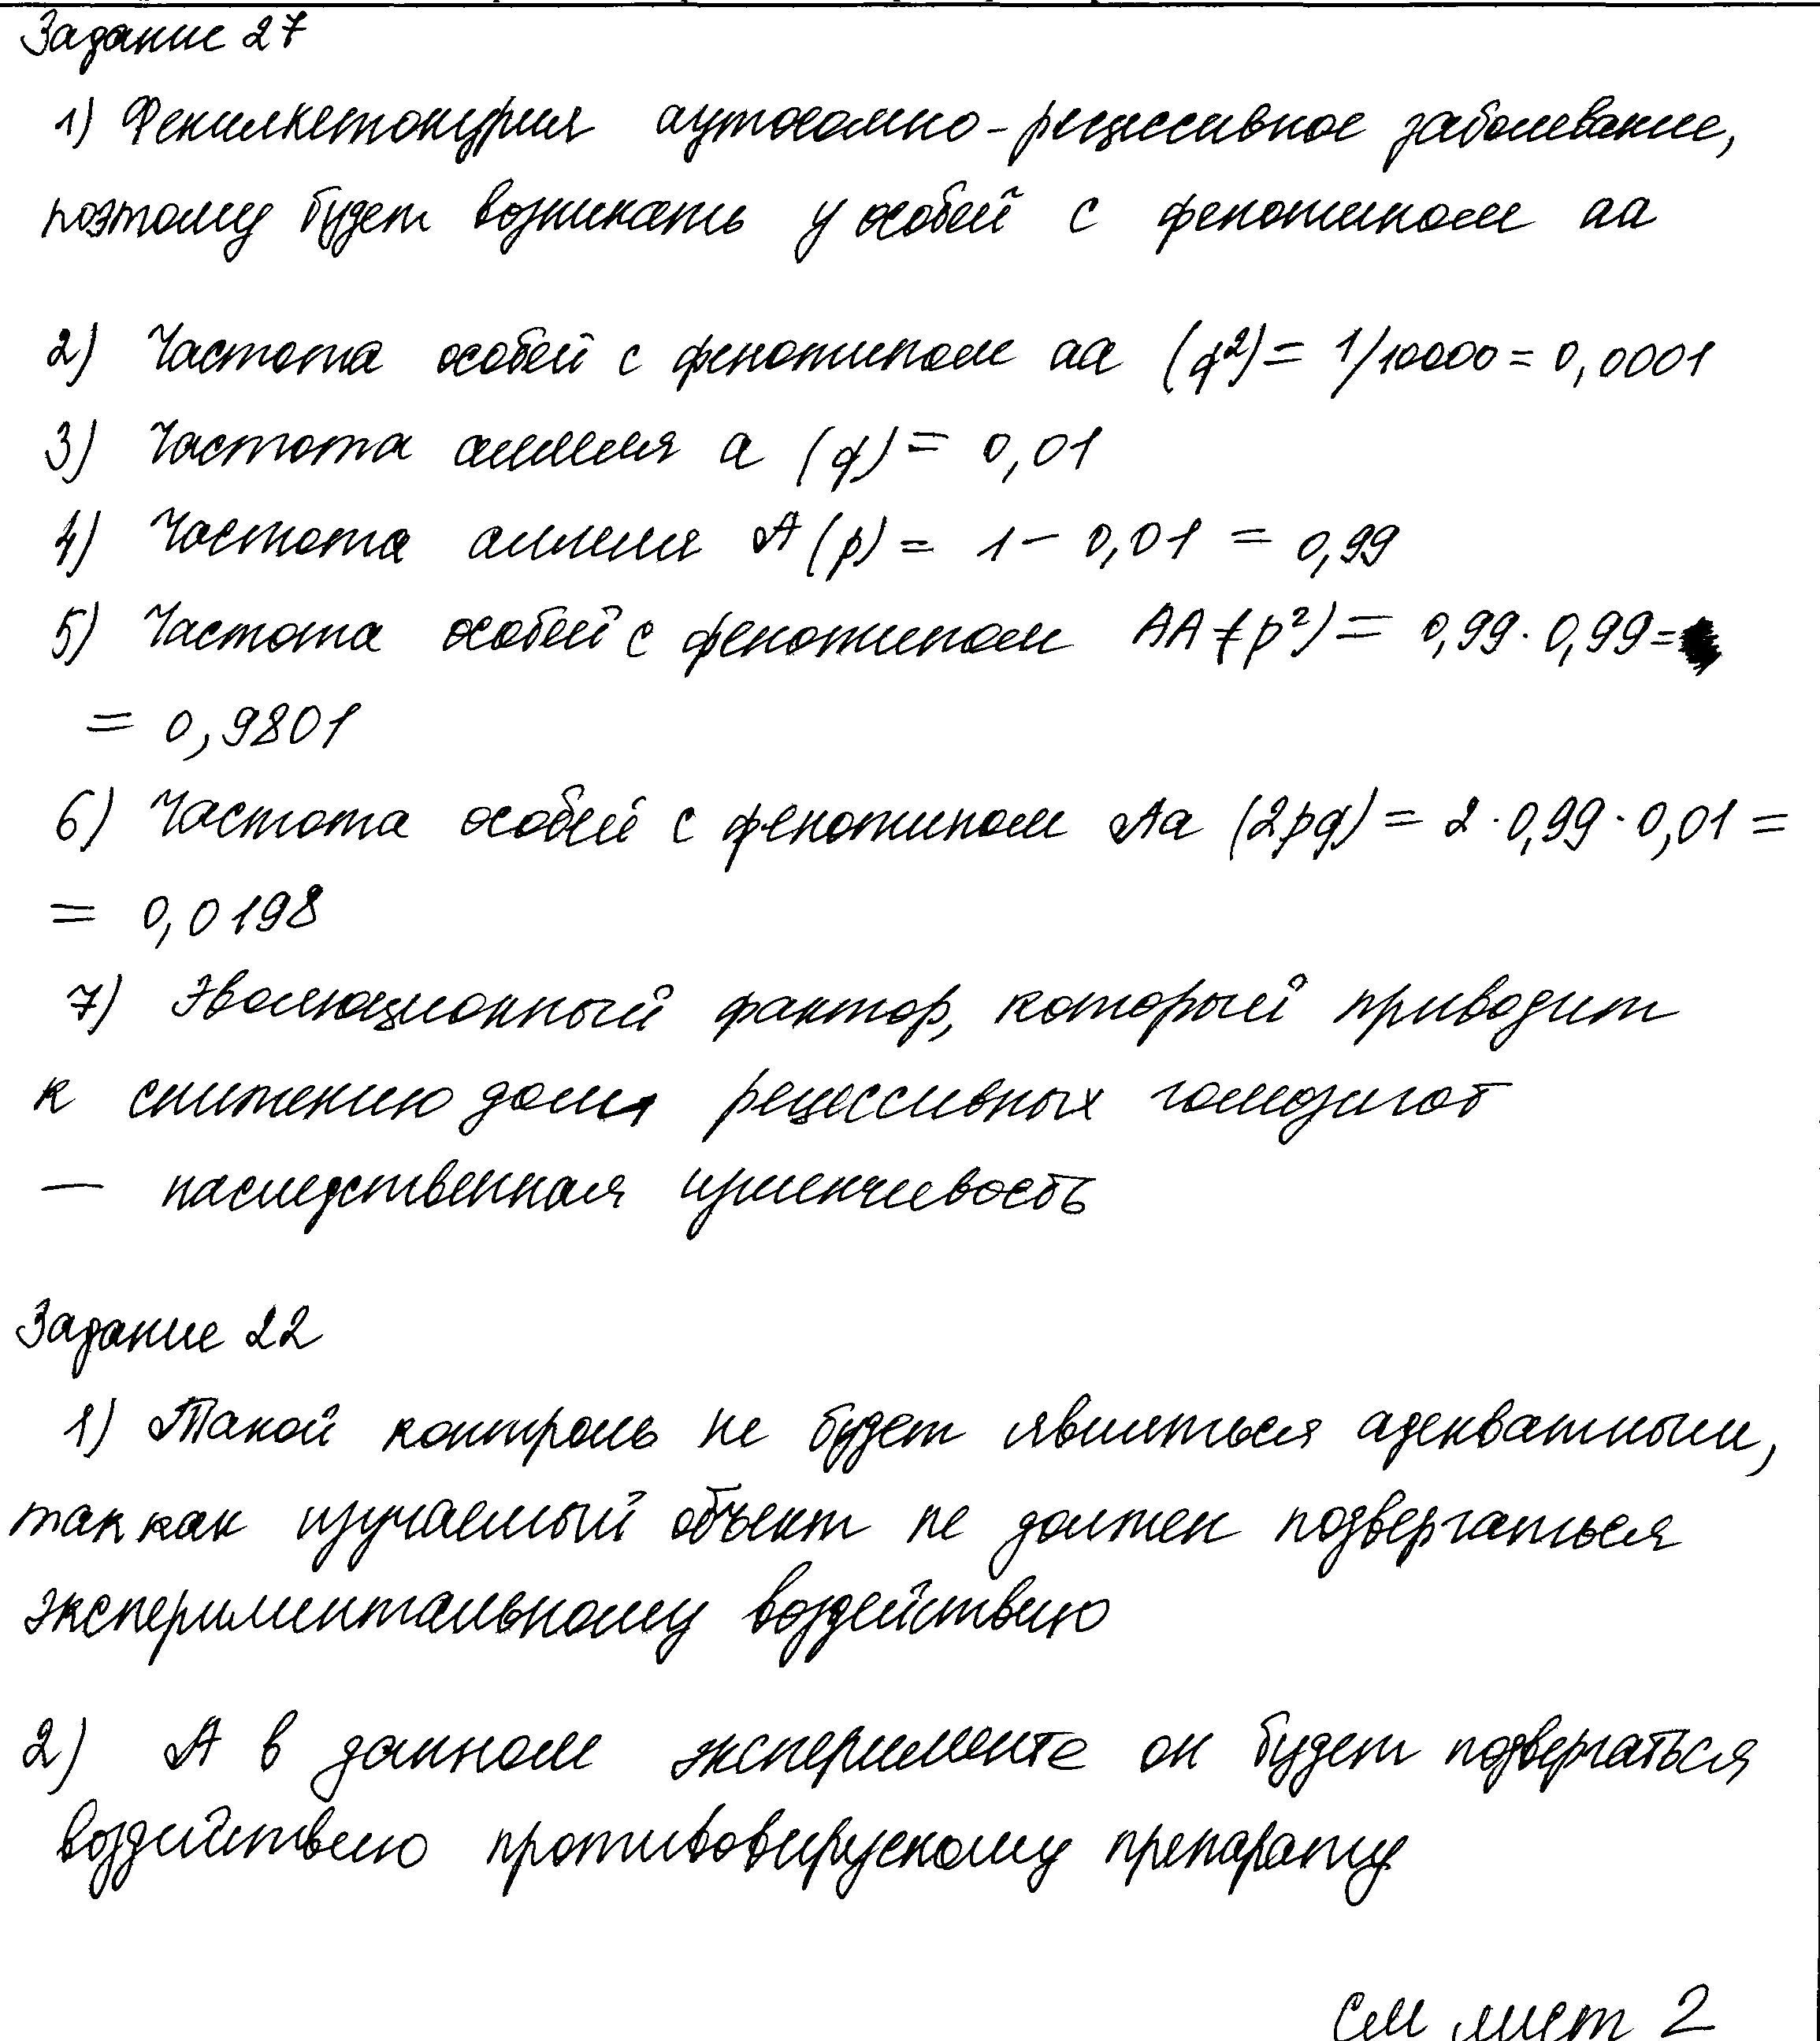 Задание 27
1) Фенилкетонурия аутосомно-рецессивное заболевание,
поэтому будет возникать у особей с фенотипом аа
2) Частота особей с фенотипом аа (q²) = 1/10000 = 0,0001
3) Частота аллеля а (q) = 0,01
4) Частота аллеля А (p) = 1 – 0,01 = 0,99
5) Частота особей с фенотипом АА (p²) = 0,99 · 0,99 =
= 0,9801
6) Частота особей с фенотипом Аа (2pq) = 2 · 0,99 · 0,01 =
= 0,0198
7) Эволюционный фактор, который приводит
к снижению доли рецессивных гомозигот
— наследственная изменчивость
Задание 22
1) Такой контроль не будет являться адекватным,
так как изучаемый объект не должен подвергаться
экспериментальному воздействию
2) А в данном эксперименте он будет подвергаться
воздействию противовирускому препарату
См лист 2